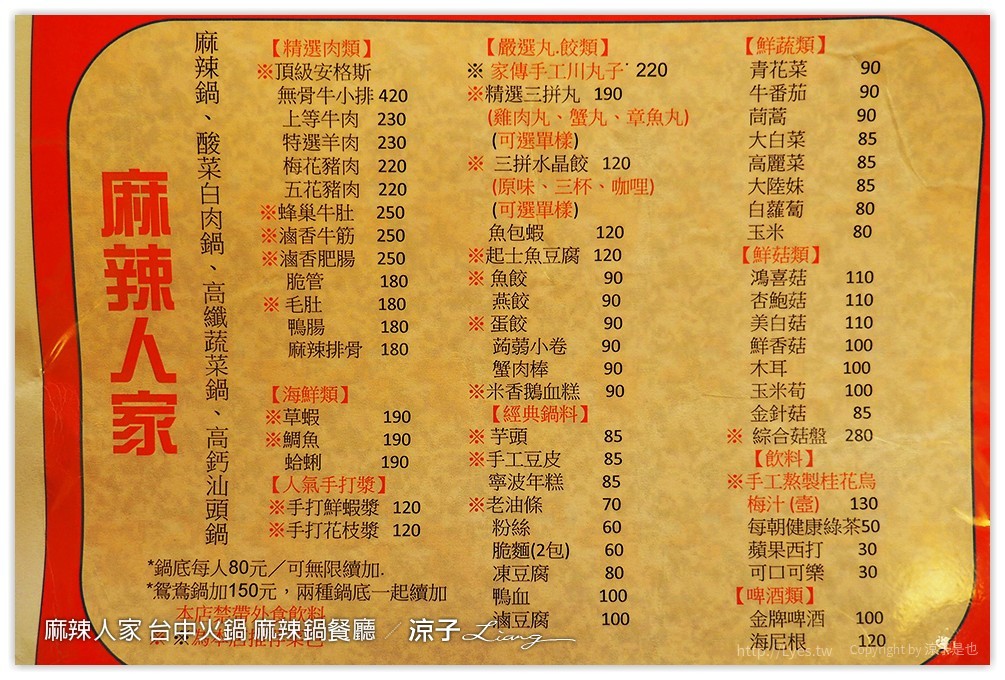 麻辣人家
麻辣鍋、酸菜白肉鍋、高纖蔬菜鍋、高鈣汕頭鍋
【精選肉類】
※頂級安格斯
無骨牛小排 420
上等牛肉 230
特選羊肉 230
梅花豬肉 220
五花豬肉 220
※蜂巢牛肚 250
※滷香牛筋 250
※滷香肥腸 250
脆管 180
※毛肚 180
鴨腸 180
麻辣排骨 180
【海鮮類】
※草蝦 190
※鯛魚 190
蛤蜊 190
【人氣手打漿】
※手打鮮蝦漿 120
※手打花枝漿 120
*鍋底每人80元／可無限續加.
*鴛鴦鍋加150元，兩種鍋底一起續加
本店禁帶外食飲料
【嚴選丸.餃類】
※ 家傳手工川丸子 220
※精選三拼丸 190
(雞肉丸、蟹丸、章魚丸)
(可選單樣)
※ 三拼水晶餃 120
(原味、三杯、咖哩)
(可選單樣)
魚包蝦 120
※起士魚豆腐 120
※ 魚餃 90
燕餃 90
※ 蛋餃 90
蒟蒻小卷 90
蟹肉棒 90
※米香鵝血糕 90
【經典鍋料】
※ 芋頭 85
※手工豆皮 85
寧波年糕 85
※老油條 70
粉絲 60
脆麵(2包) 60
凍豆腐 80
鴨血 100
滷豆腐 100
【鮮蔬類】
青花菜 90
牛番茄 90
茼蒿 90
大白菜 85
高麗菜 85
大陸妹 85
白蘿蔔 80
玉米 80
【鮮菇類】
鴻喜菇 110
杏鮑菇 110
美白菇 110
鮮香菇 100
木耳 100
玉米荀 100
金針菇 85
※ 綜合菇盤 280
【飲料】
※手工熬製桂花烏
梅汁 (壺) 130
每朝健康綠茶50
蘋果西打 30
可口可樂 30
【啤酒類】
金牌啤酒 100
海尼根 120
麻辣人家 台中火鍋 麻辣鍋餐廳 ／ 涼子 Liang
http://Lyes.tw Copyright by 涼子是也